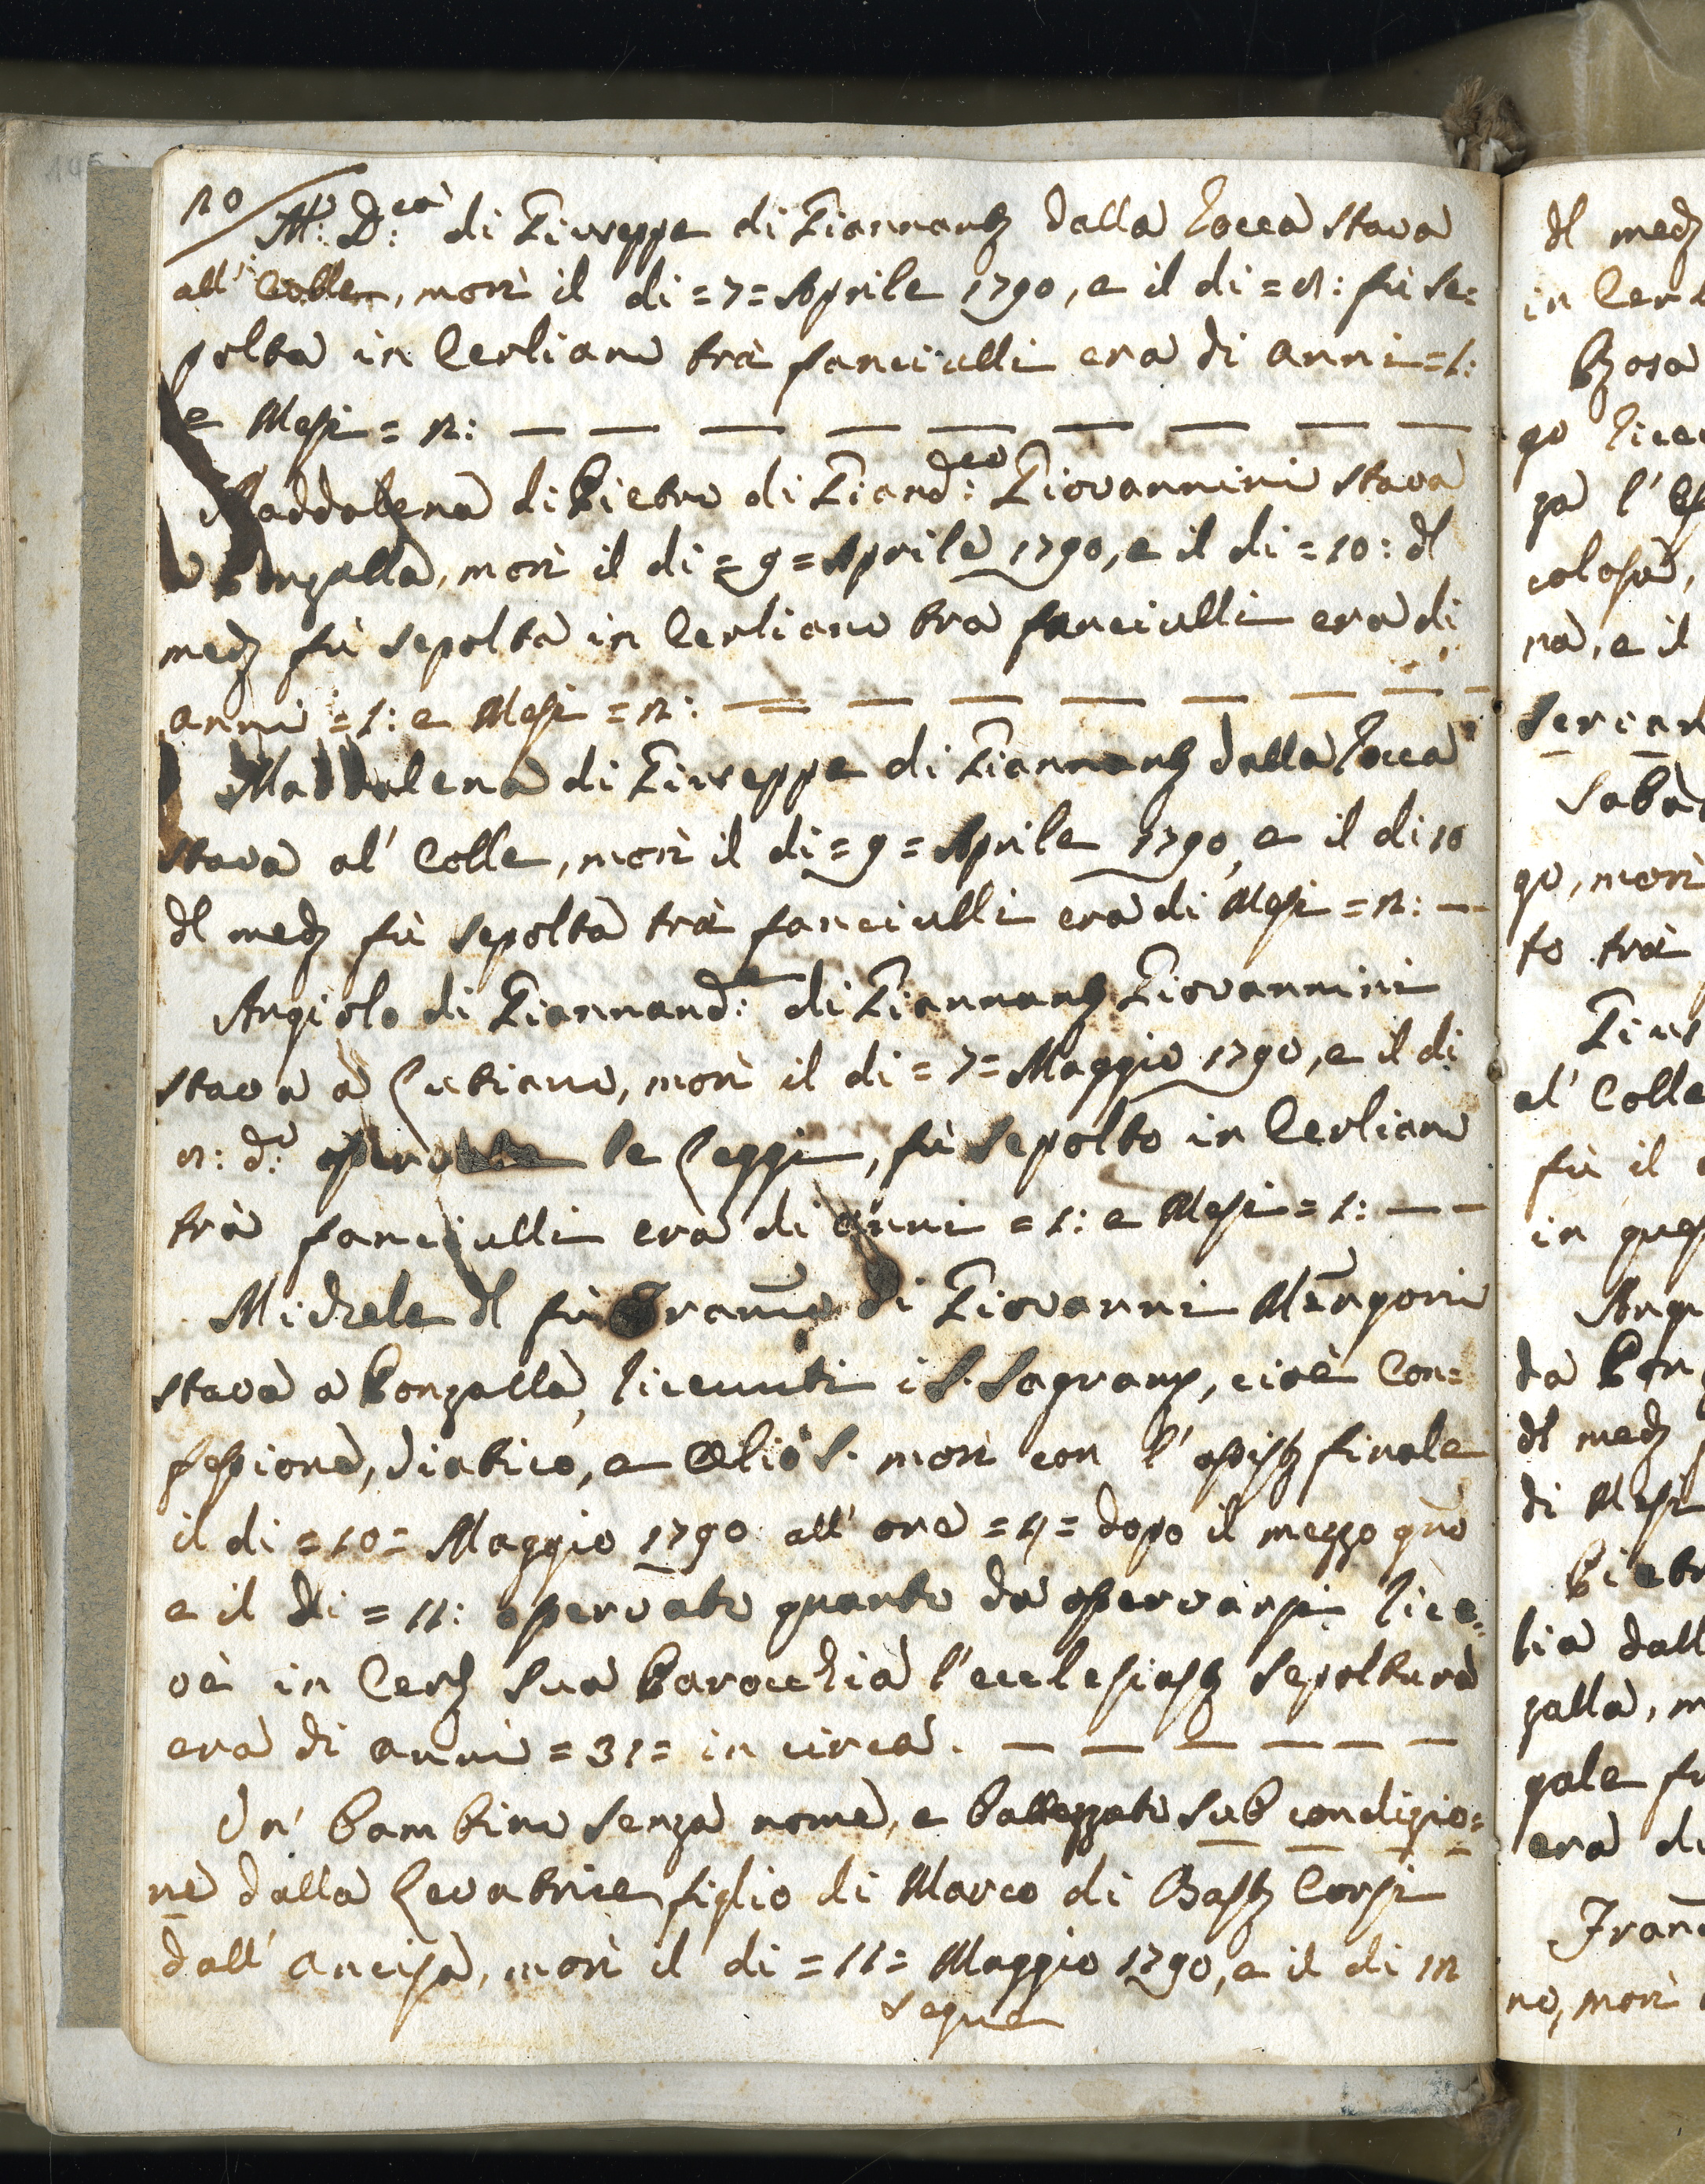 20
M:a D:ca di Giuseppe di Giannantº dalla Rocca stava
all' Colle, morì il di = 7 = Aprile 1790, e il di = 8: fù se=
polta in Cerliano trà fanciulli era di anni = 1:
e Mesi = 2: — — — — — — — — —
Maddalena di Pietro di Giand:co Giovannini stava
a Bonzalla, morì il di = 9 = Aprile 1790, e il di = 10: dl
medº fù sepolta in Cerliano tra fanciulli era di
anni = 1: e Mesi = 2: — — — — — — — —
Maddalena di Giuseppe di Giannantº dalla Rocca
stava al' Colle, morì il di = 9 = Aprile 1790, e il di 10
dl medº fù sepolta trà fanciulli era di Mesi = 2: —
Angiolo di Giannand:a di Giannantº Giovannini
stava a Lutiano, morì il di = 7 = Maggio 1790, e il di
8: d:o le Leggi, fù sepolto in Cerliano
trà fanciulli era di anni = 1: e Mesi = 1: — —
Michele dl fù Francº di Giovanni Mengoni
stava a Bonzalla, ricevuti i S. Sagramº, cioè Con=
fessione, Viatico, e Olio S. morì con l' assistº finale
il di = 10 = Maggio 1790 all' ore = 4 = dopo il mezzo gno
e il di = 11: osservato quanto da osservarsi rice=
vè in Cerlº sua Parocchia l'ecclesiastº sepoltura
era di anni = 31 = in circa. — — — — — —
Un' bambino senza nome, e battezzato sub condizio=
ne dalla Levatrice figlio di Marco di Bastº Corsi
dall' ancisa, morì il di = 11 = Maggio 1790, e il di 12
segue
dl medº
in Cer
go
za l'
na, e il
go, morì
to trà
al' Colle
fù il
in
da
dl medº
di Mesi
zalla, m
era di
no, morì